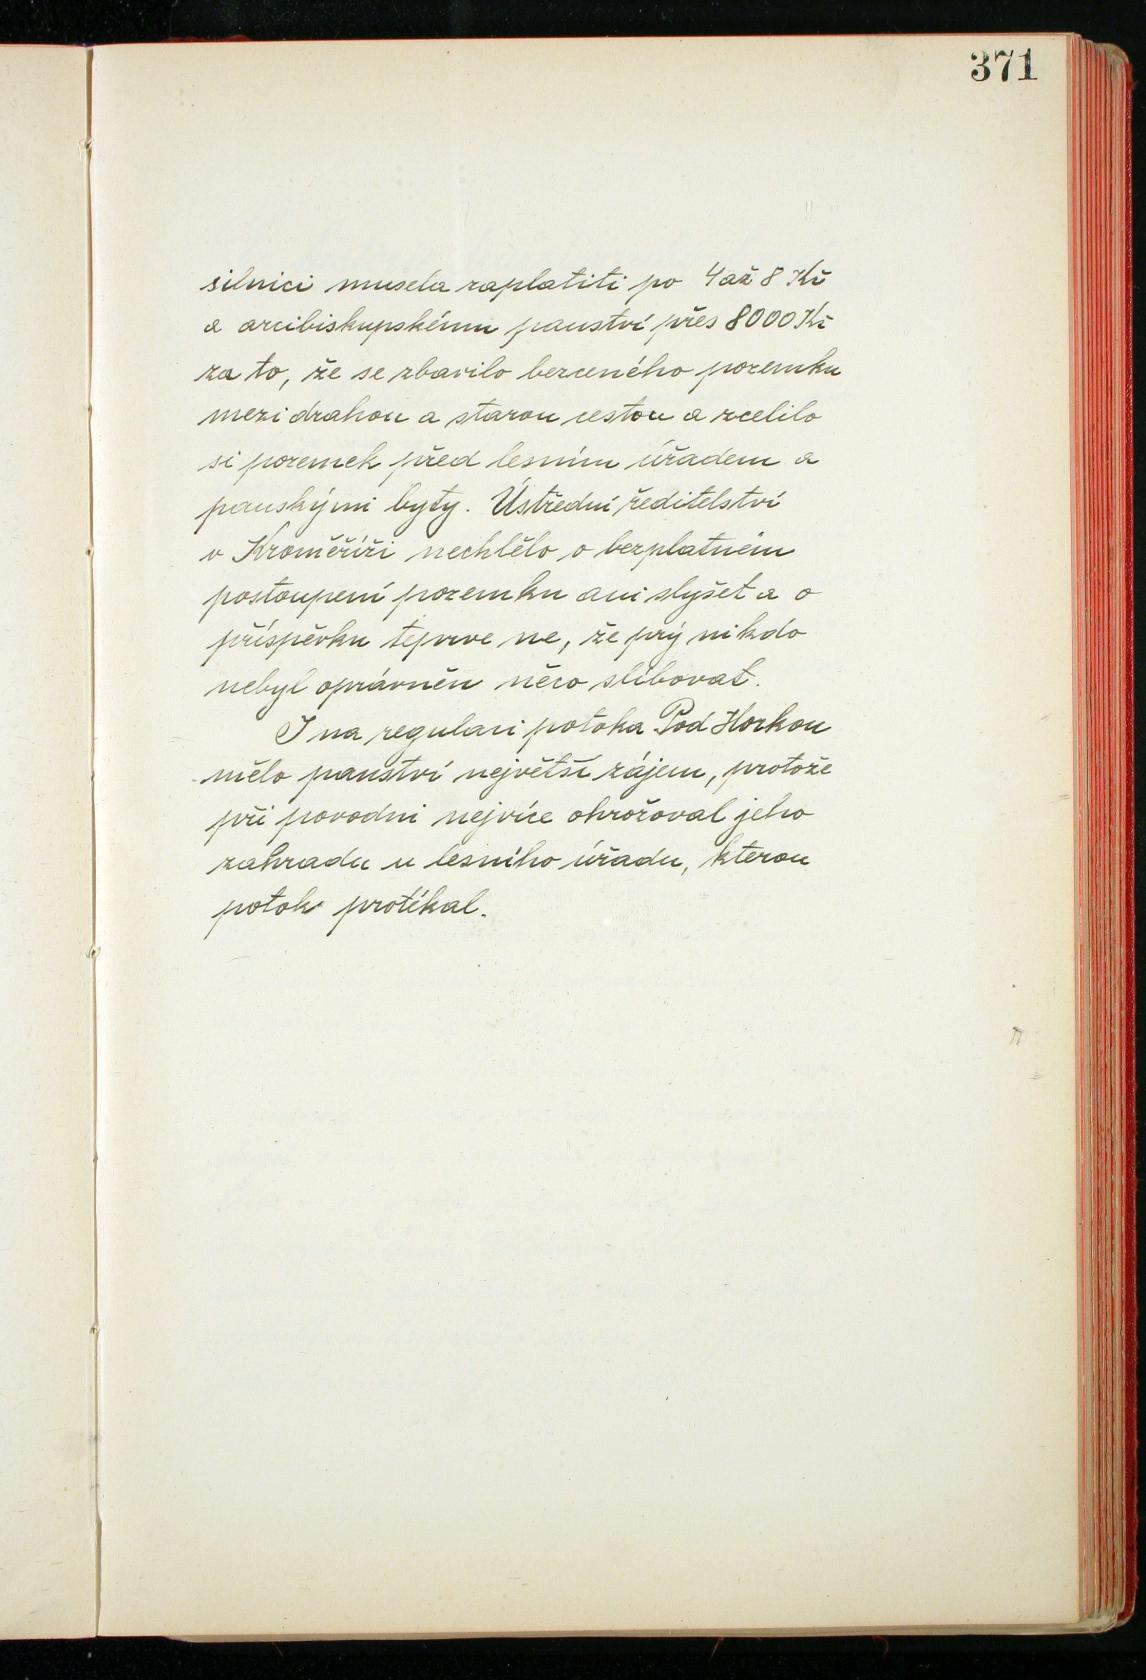 371
silnici musela zaplatiti po 4 až 8 Kč
a arcibiskupskému panství přes 8000 Kč
za to, že se zbavilo bezceného pozemku
mezi drahou a starou cestou a zcelilo
si pozemek před lesním úřadem a
panskými byty. Ústřední ředitelství
v Kroměříži nechtělo o bezplatném
postoupení pozemku ani slyšet a o
příspěvku teprve ne, že prý nikdo
nebyl oprávněn něco slibovat.
I na regulaci potoka Pod Horkou
mělo panství největší zájem, protože
při povodni nejvíce ohrožoval jeho
zahradu u lesního úřadu, kterou
potok protékal.